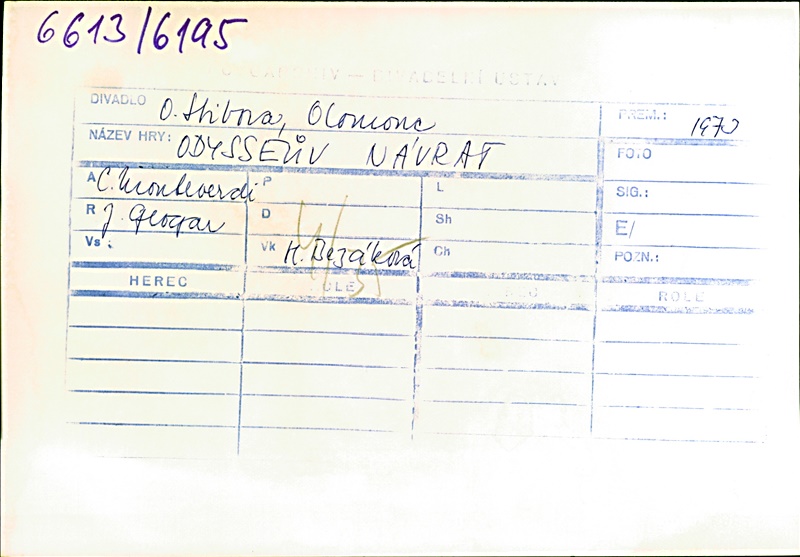 6613/6195
DIVADELNÍ ÚSTAV
DIVADLO O. Stibora, Olomouc PREM.: 1970
NÁZEV HRY: ODYSSEŮV NÁVRAT FOTO
A C. Monteverdi P L SIG.:
R J. Glogar D Sh E/
Vs: Vk H. Bezáková Ch POZN.:
HEREC ROLE ROLE